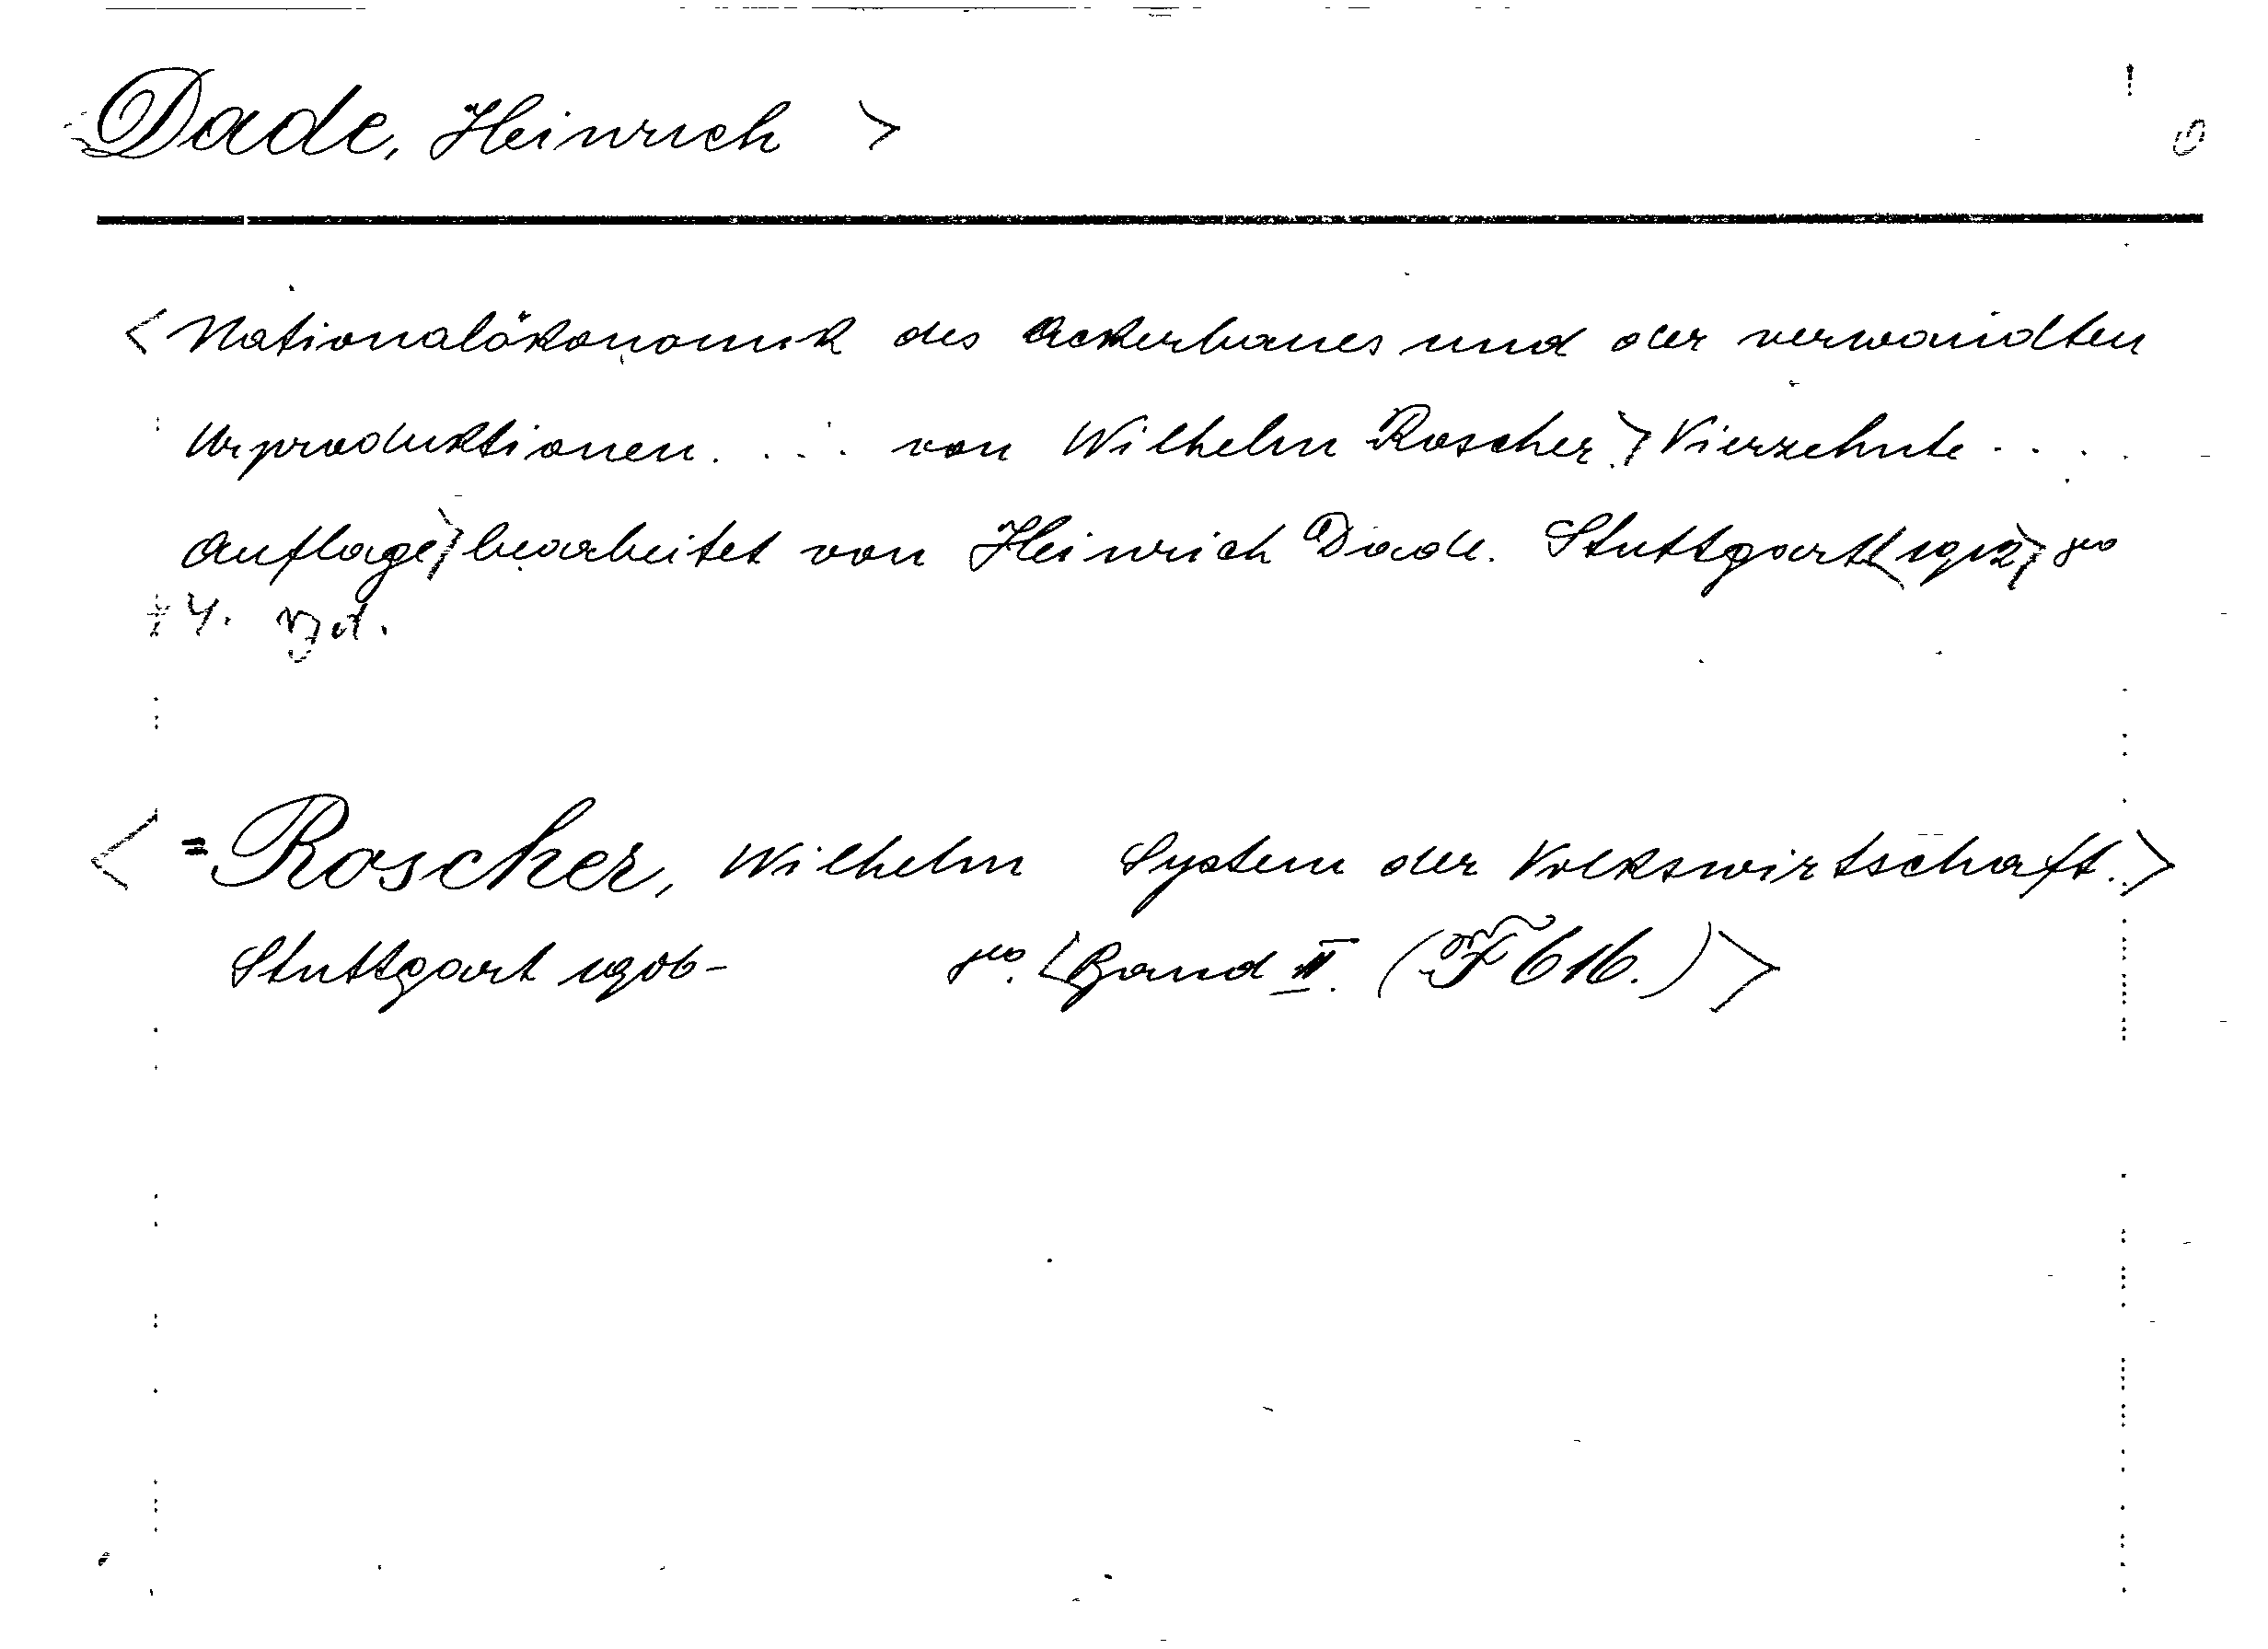 Dade, Heinrich >
< Nationalökonomik des Ackerbaues und der verwandten
Urproduktionen. . . . von Wilhelm Roscher.> Vierzehnte . . . .
Auflage> bearbeitet von Heinrich Dade. Stuttgart <1912> 8vo
4.
< = Roscher, Wilhelm System der Volkswirtschaft. >
Stuttgart 1906- 8vo. <Band II. (F 616.) >